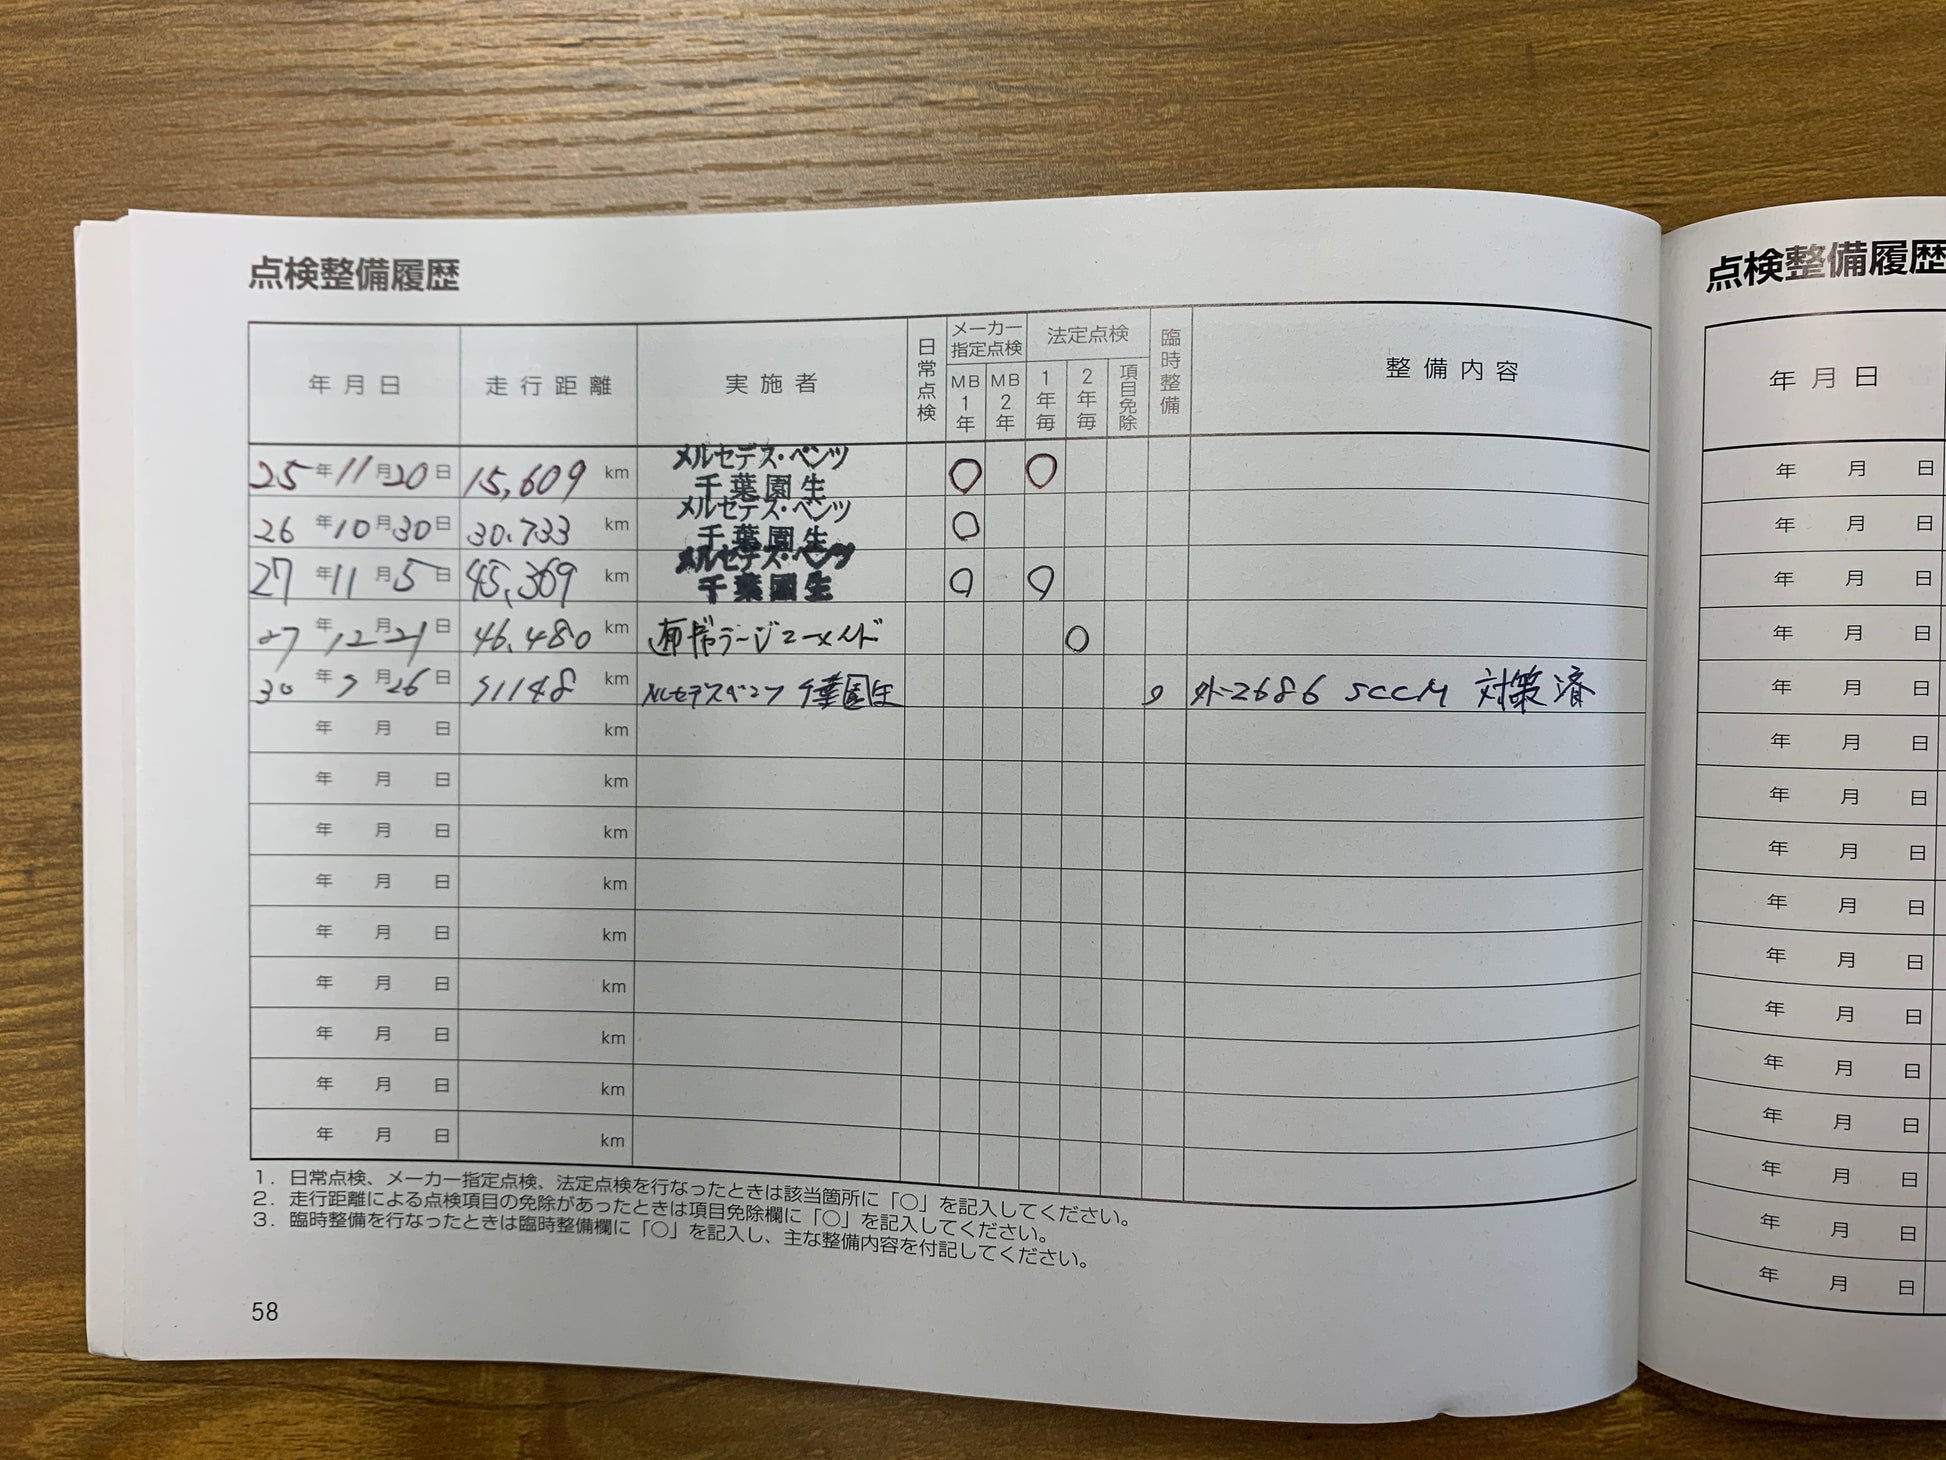 点検整備履歴
年月日 走行距離 実施者 日常点検 メーカー指定点検 MB1年 MB2年 法定点検 1年毎 2年毎 項目免除 臨時整備 整備内容
25年11月20日 15,609 km メルセデス・ベンツ千葉園生 ○ ○
26年10月30日 30.733 km メルセデス・ベンツ千葉園生 ○
27年11月5日 45,369 km メルセデス・ベンツ千葉園生 ○ ○
27年12月21日 46.480 km ○
30年7月26日 51148 km メルセデスベンツ 千葉園生 ○ 外-2686 SCCM 対策済
年 月 日 km
年 月 日 km
年 月 日 km
年 月 日 km
年 月 日 km
年 月 日 km
年 月 日 km
年 月 日 km
年 月 日 km
1. 日常点検、メーカー指定点検、法定点検を行なったときは該当箇所に「○」を記入してください。
2. 走行距離による点検項目の免除があったときは項目免除欄に「○」を記入してください。
3. 臨時整備を行なったときは臨時整備欄に「○」を記入し、主な整備内容を付記してください。
58
点検整備履歴
年月日
年 月 日
年 月 日
年 月 日
年 月 日
年 月 日
年 月 日
年 月 日
年 月 日
年 月 日
年 月 日
年 月 日
年 月 日
年 月 日
年 月 日
年 月 日
年 月 日